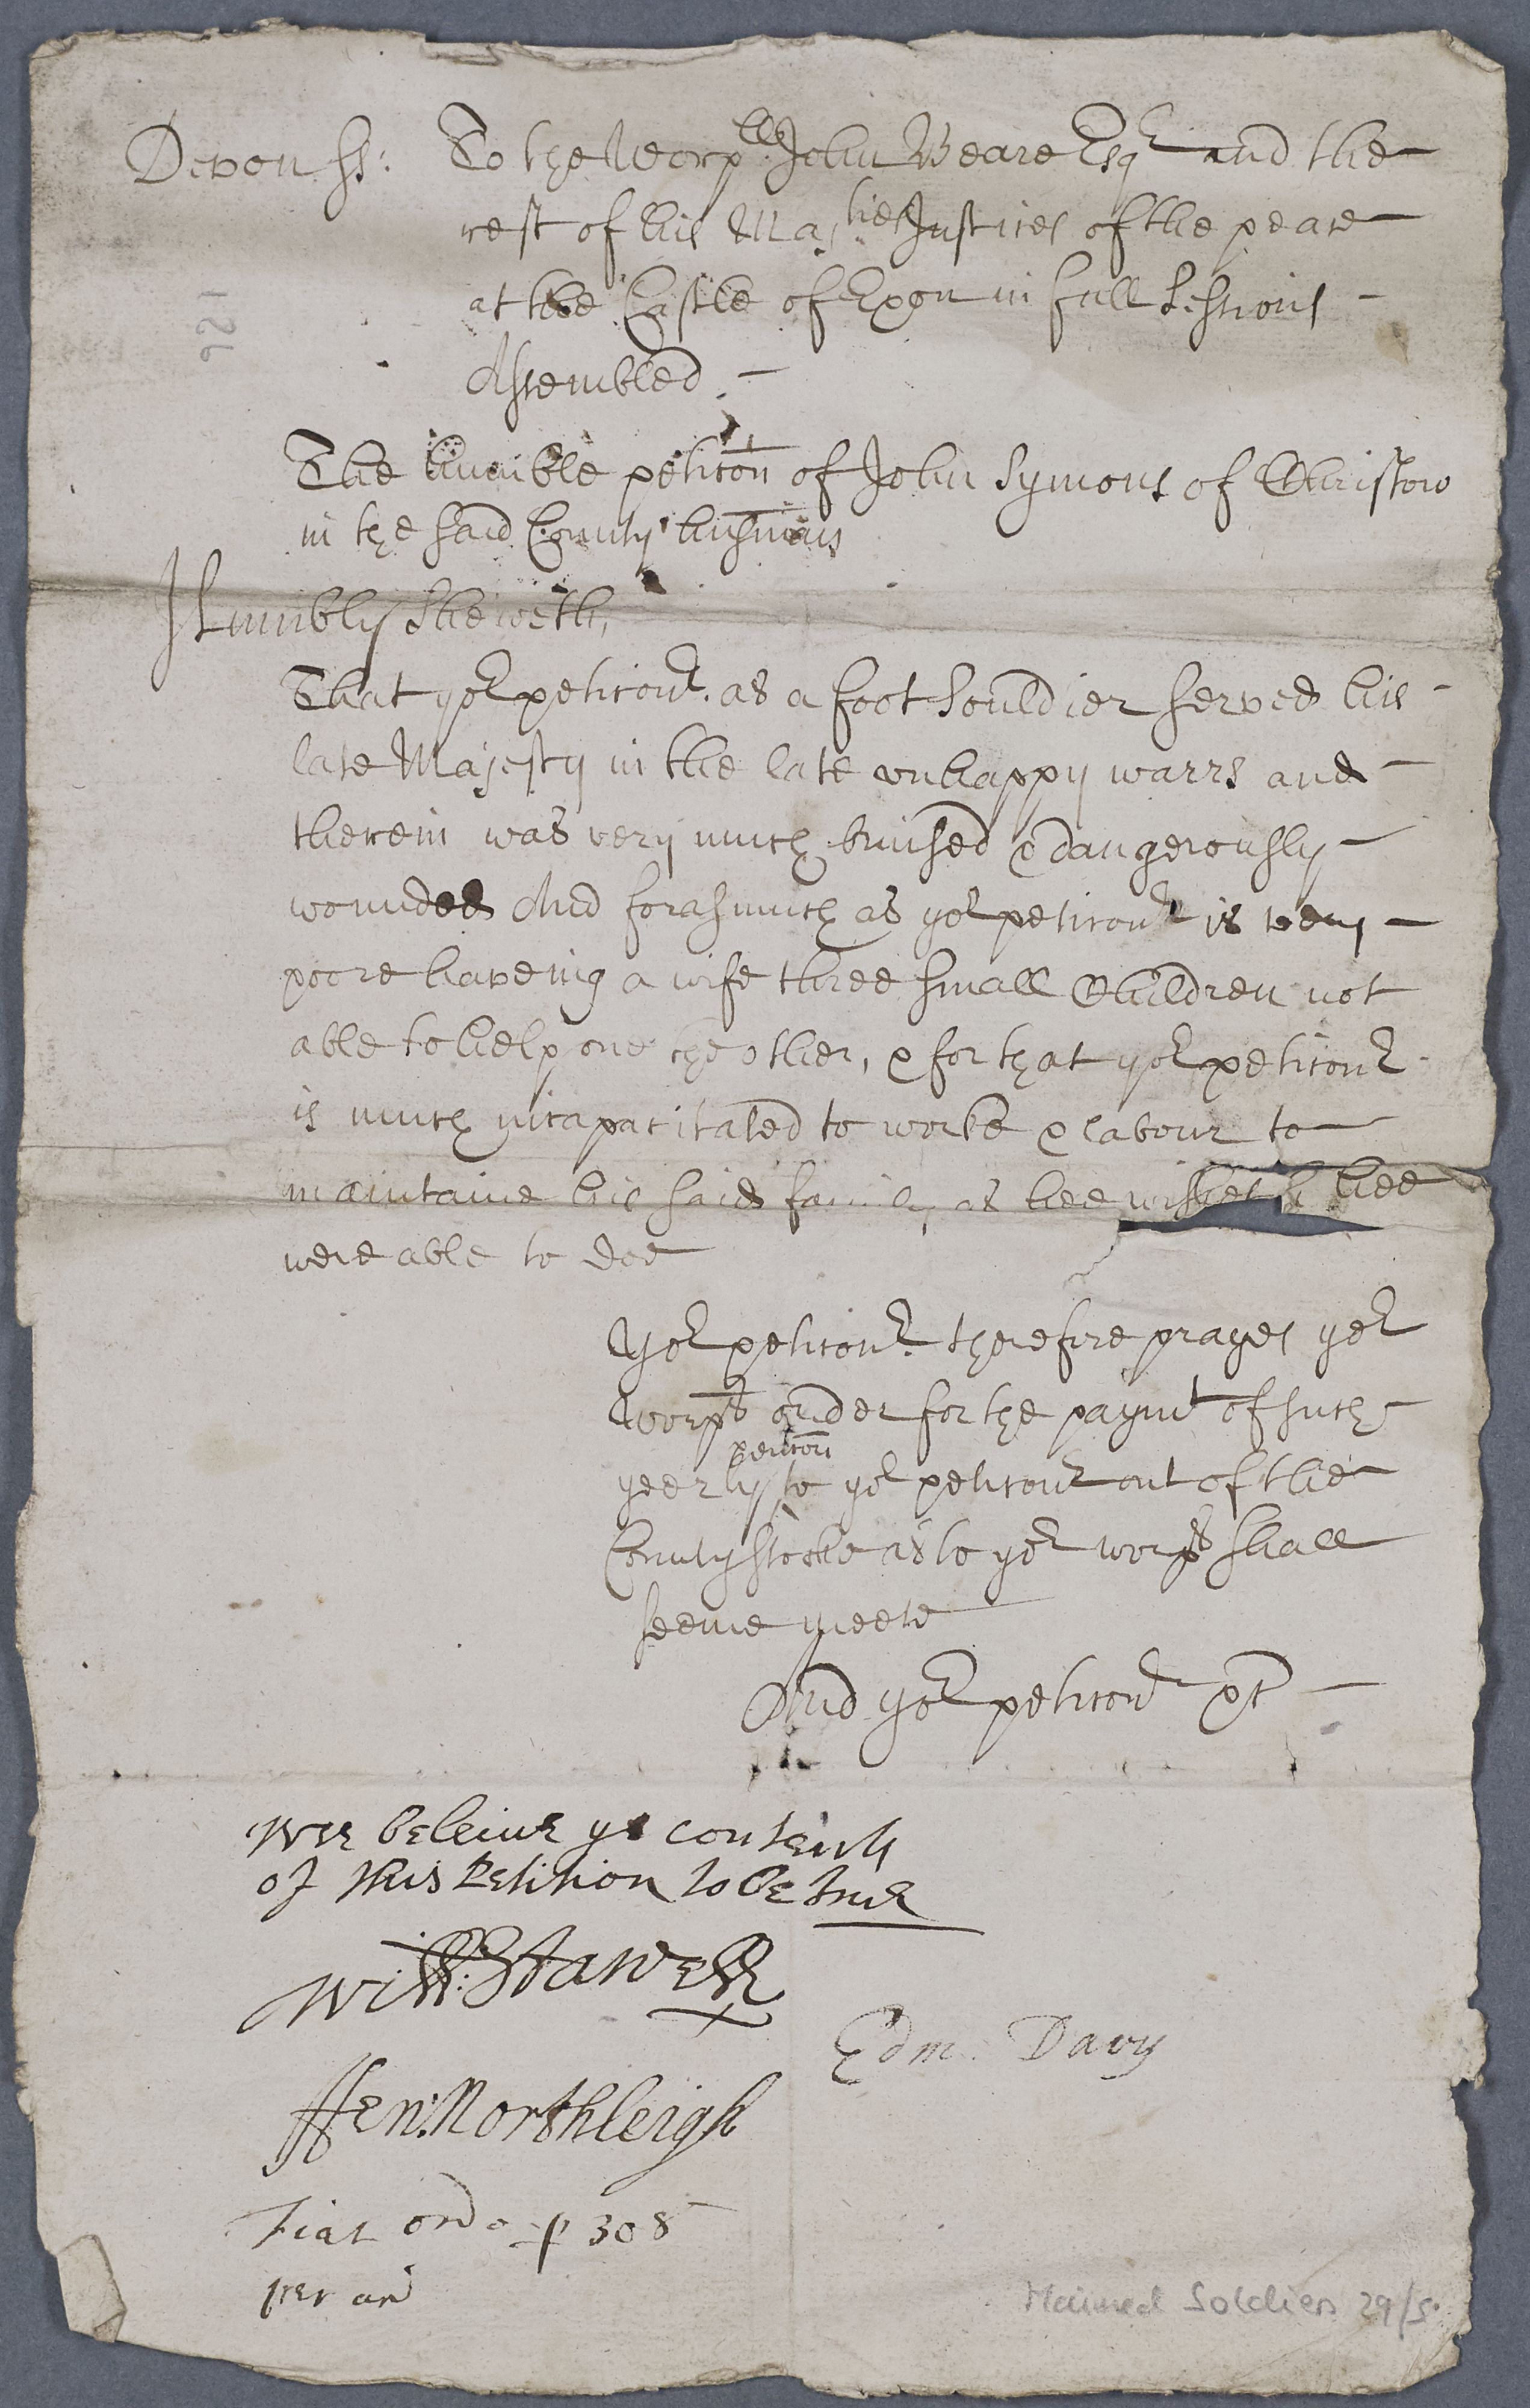 Devon ss: To the Worpll John Beare Esqr and the
rest of his Maties Justices of the peace
at the Castle of Exon in full Sessions
Assembled
The humble peticon of John Symons of Christow
in the said County
Humbly Sheweth,
That yor peticonr. as a foot Souldier served his
late Majesty in the late vnhappy warrs and
therein was very much bruised & dangerously
wounded And forasmuch as yor peticonr is very
poore haveing a wife three small Children not
able to help one the other, & for that yor peticonr
is much incapacitated to worke & labour to
maintaine his said family as hee wisheth hee
were able to doe
Yor peticonr. therefore prayes yor
worpps order for the paymt of such
yeerly pencon to yor peticonr out of the
County stocke as to yor worpps shall
seeme meete
And yor peticonr &c
Wee beleiue ye contents
of this Petition to be true
Will: Stawell
Edm. Davy
Hen: Northleigh
Fiat ord. p 30s
per an
Maimed Soldiers 29/5
126